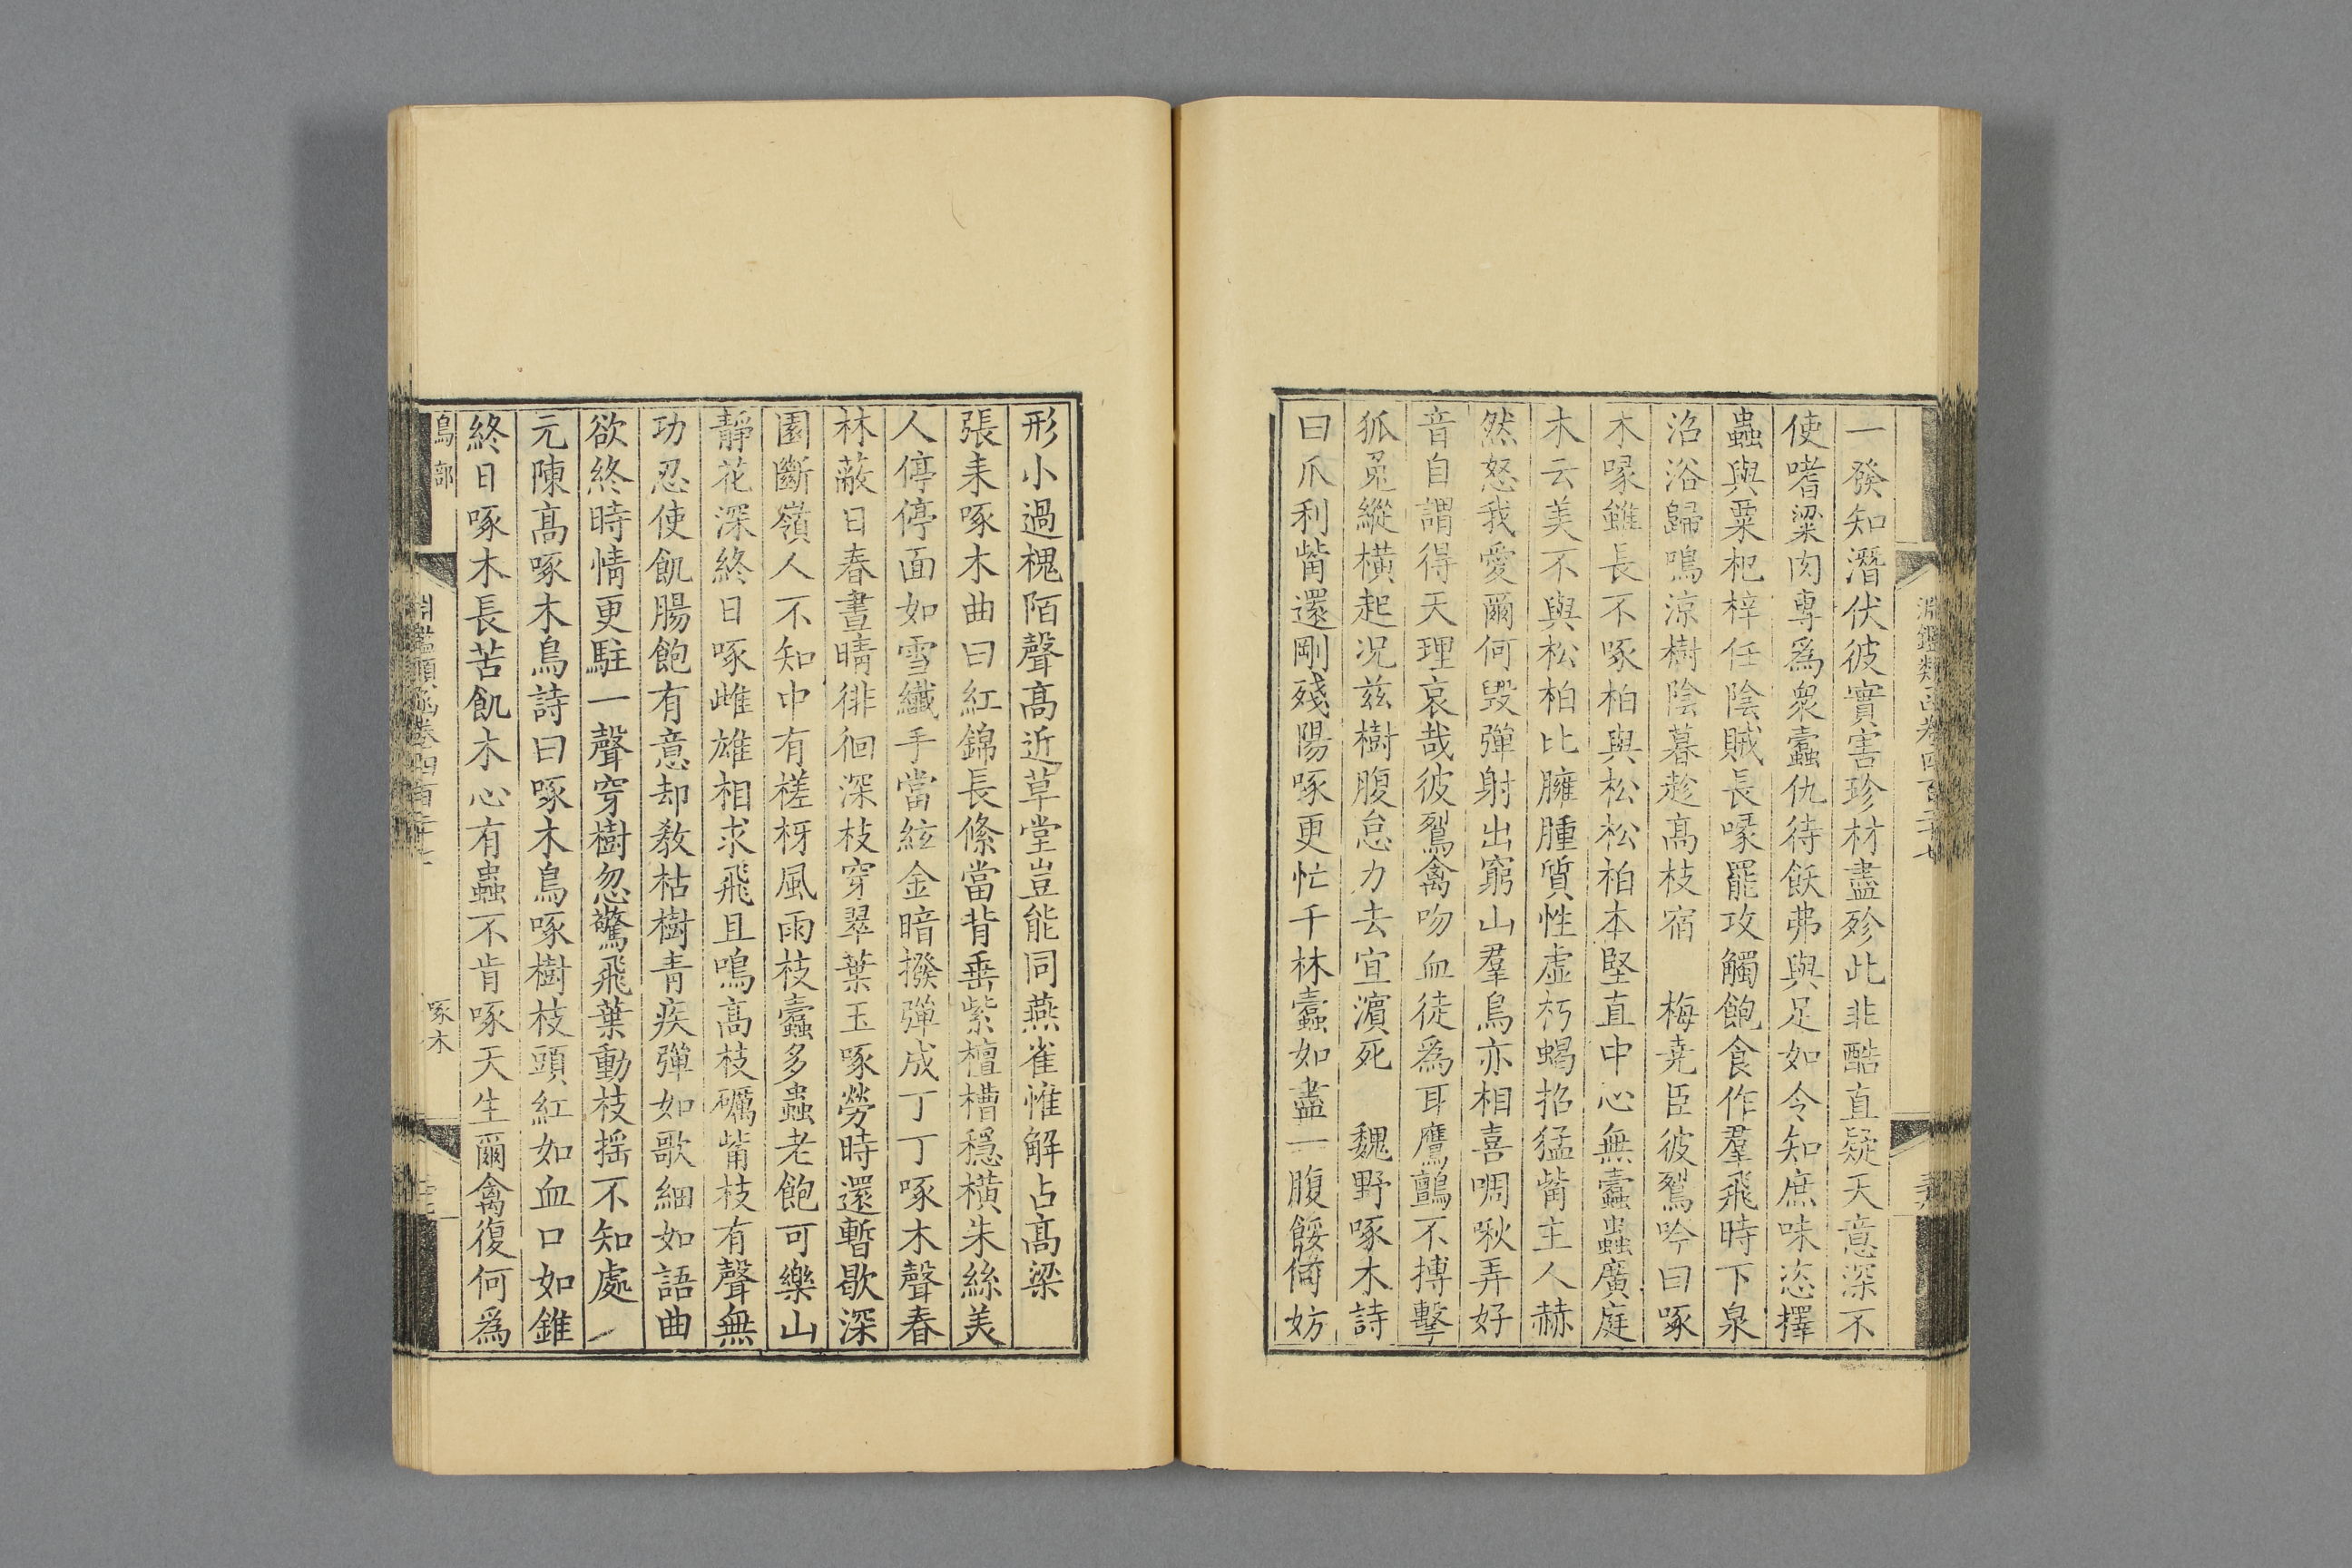 一發知潛伏彼實害珍材盡殄此非酷直疑天意深不
使嗜粱肉専爲衆蠧仇待飫弗與足如令知庶味恣擇
蟲與粟杞梓任陰賊長喙罷攻觸飽食作羣飛時下泉
沿浴歸鳴涼樹陰暮趁髙枝宿　梅堯臣彼鴷吟曰啄
木喙雖長不啄柏與松松柏本堅直中心無蠧蟲廣庭
木云美不與松柏比臃腫質性虛朽蝎招猛觜主人赫
然怒我愛爾何毀彈射出窮山羣鳥亦相喜啁啾弄好
音自謂得天理哀哉彼鴷禽吻血徒爲耳鷹鸇不搏擊
狐兎縱橫起况兹樹腹怠力去宜濵死　魏野啄木詩
曰爪利觜還剛殘陽啄更忙千林蠧如盡一腹餒何妨
形小過槐陌聲髙近草堂豈能同燕雀惟解占髙梁
張耒啄木曲曰紅錦長絛當背垂紫檀槽穩橫朱絲美
人停停面如雪纖手當絃金暗撥彈成丁丁啄木聲春
林蔽日春晝晴徘徊深枝穿翠葉玉啄勞時還暫歇深
園斷嶺人不知中有槎枒風雨枝蠧多蟲老飽可樂山
靜花深終日啄雌雄相求飛且鳴髙枝礪觜枝有聲無
功忍使飢腸飽有意却教枯樹青疾彈如歌細如語曲
欲終時情更駐一聲穿樹忽驚飛葉動枝揺不知處
元陳髙啄木鳥詩曰啄木鳥啄樹枝頭紅如血口如錐
終日啄木長苦飢木心有蟲不肯啄天生爾禽復何爲
鳥部　淵鑑類函卷四百二十七　啄木